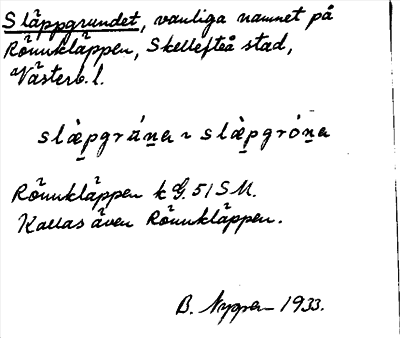 Släppgrundet, vanliga namnet på
Rönnkläppen, Skellefteå stad,
Västerb. l.
slæ̀pgrána ~ slæ̀pgróna
Rönnkläppen k G. 51 SM.
Kallas även Rönnkläppen.
B. Nygren 1933.